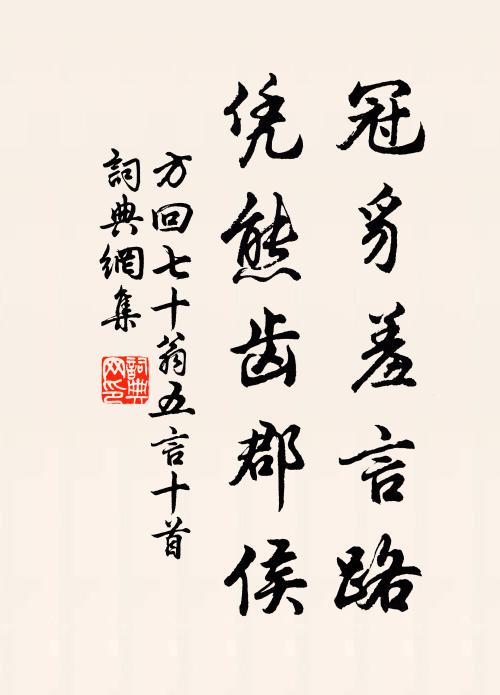 冠豸羞言路
凭熊齿郡侯
方回七十翁五言十首
詞典網集
詞典网印